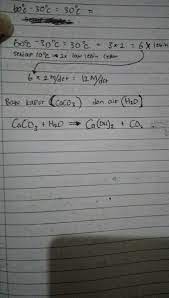 60°C - 30°C = 30°C =
60°C - 30°C = 30°C = 3 × 2 = 6 × lebih
setiap 10°C → 2x laju lebih cepat
6 × 2 M/det = 12 M/det
Batu kapur (CaCO3) dan air (H2O)
CaCO3 + H2O → Ca(OH)2 + CO2